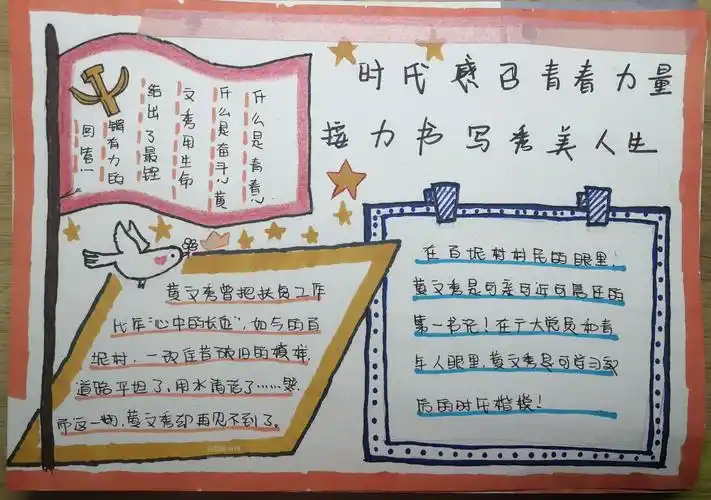 时代感召青春力量
接力书写秀美人生
什么是青春~
什么是奋斗~黄
文秀用生命
给出了最铿
锵有力的
回答!
黄文秀曾把扶贫工作
比作“心中的长征”,如今的百
坭村,一改往昔破旧的模样,
道路平坦了,用水清洁了……然
而这一切,黄文秀却再见不到了。
在百坭村村民的眼里,
黄文秀是可亲可近可信任的
第一书记!在广大党员和青
年人眼里,黄文秀是可学习
的时代楷模!